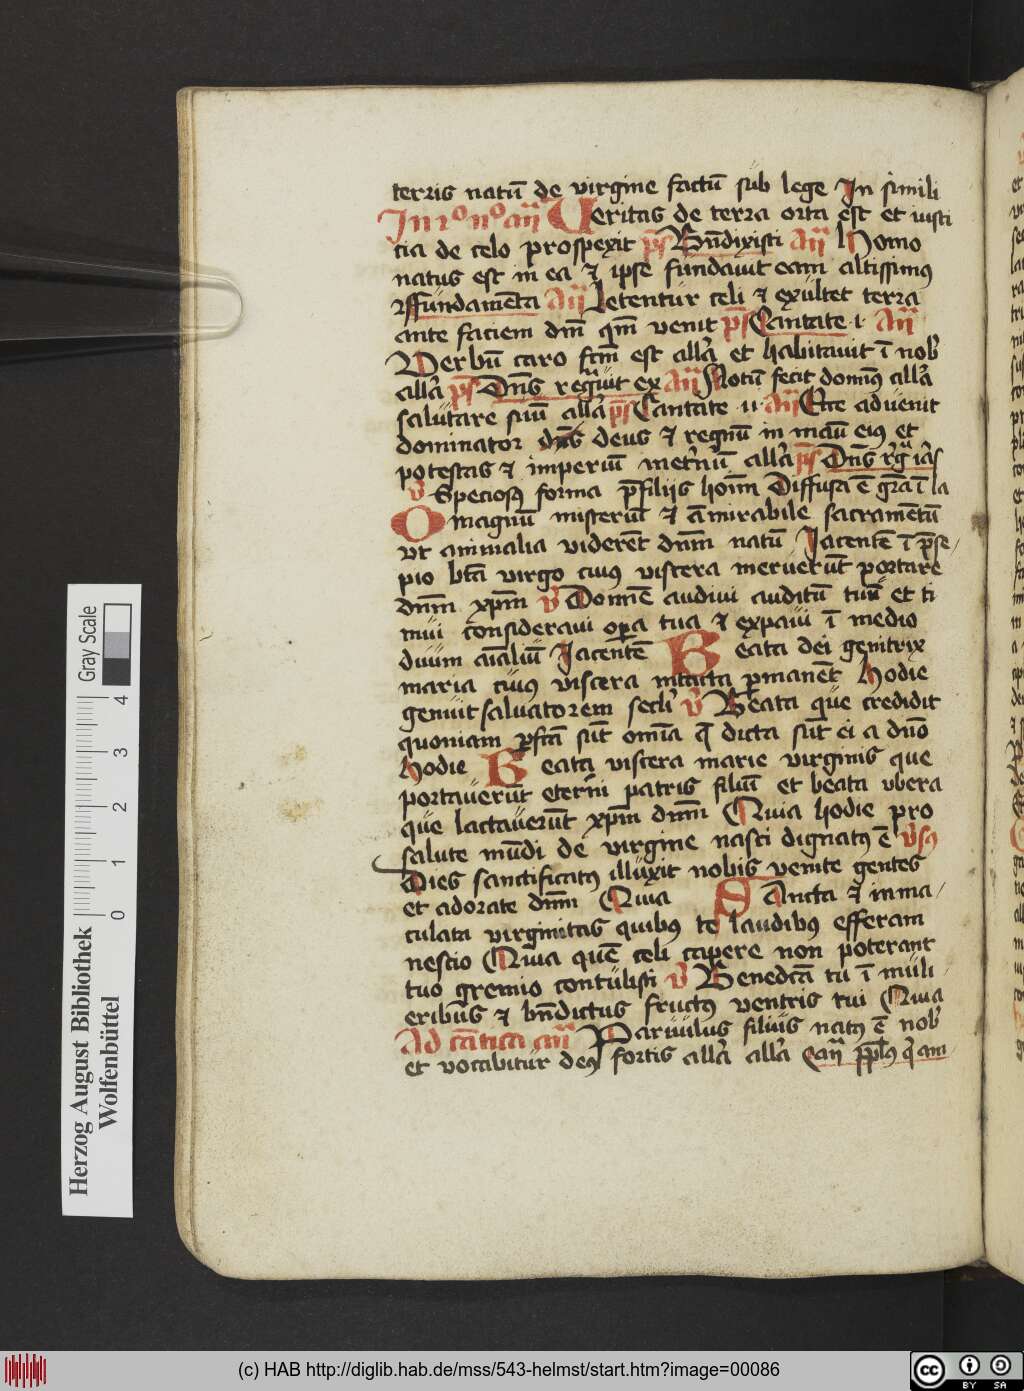 terris natū de virgine factū sub lege In simili
In 1º nº añ Veritas de terra orta est et iusti
cia de celo prospexit ps Bn̄dixisti añ Homo
natus est in ea et ipse fundavit eam altissimꝰ
ps ffundamēta Añ Letentur celi et exultet terra
ante faciem dn̄i qm̄ venit ps Cantate i Añ
Verbū caro fcm̄ est allā et habitavit ī nob̄
allā ps Dn̄s regnavit ex Añ Notū fecit dominꝰ allā
salutare suū allā ps Cantate ii añ Ecce advenit
dominator dn̄s deus et regnū in manū eiꝰ et
potestas et imperiū allā ps Dn̄s
v̄ Speciosꝰ forma p̄ filiis hoīm Diffusa ē grā ī la
O magnū misteriū et āmirabile sacramētū
ut animalia viderēt dn̄m natū Iacentē ī p̄se
pio btā virgo cuiꝰ viscera meruerūt portare
dn̄m xp̄m v̄ Domīe audivi auditū tuū et ti
mui consideravi oꝑa tua et expavi ī medio
duum aīaliū Iacentē Beata dei genitrix
maria cuiꝰ viscera intacta ꝑmanēt Hodie
genuit salvatorem secl̄i v̄ Beata que credidit
quoniam ꝑfcā sūt omīa q̄ dicta sūt ei a dn̄o
Hodie Beata viscera marie virginis que
portaverūt eterni patris filiū et beata ubera
que lactaverūt xp̄m dn̄m Quia hodie pro
salute mūdi de virgine nasci dignatꝰ ē v̄sꝰ
Dies sanctificatꝰ illuxit nobis venite gentes
et adorate dn̄m Quia SAncta et inma
culata virginitas quibꝰ te laudibꝰ efferam
nescio Quia quē celi capere non poterant
tuo gremio contulisti v̄ Benedcā tu ī muli
eribus et bn̄dictus fructꝰ ventris tui Quia
Ad cātica añ Parvulus filius natꝰ ē nob̄
et vocabitur deꝰ fortis allā allā Can̄
Herzog August Bibliothek
Wolfenbüttel
Gray Scale
0 1 2 3 4
(c) HAB http://diglib.hab.de/mss/543-helmst/start.htm?image=00086
cc BY SA